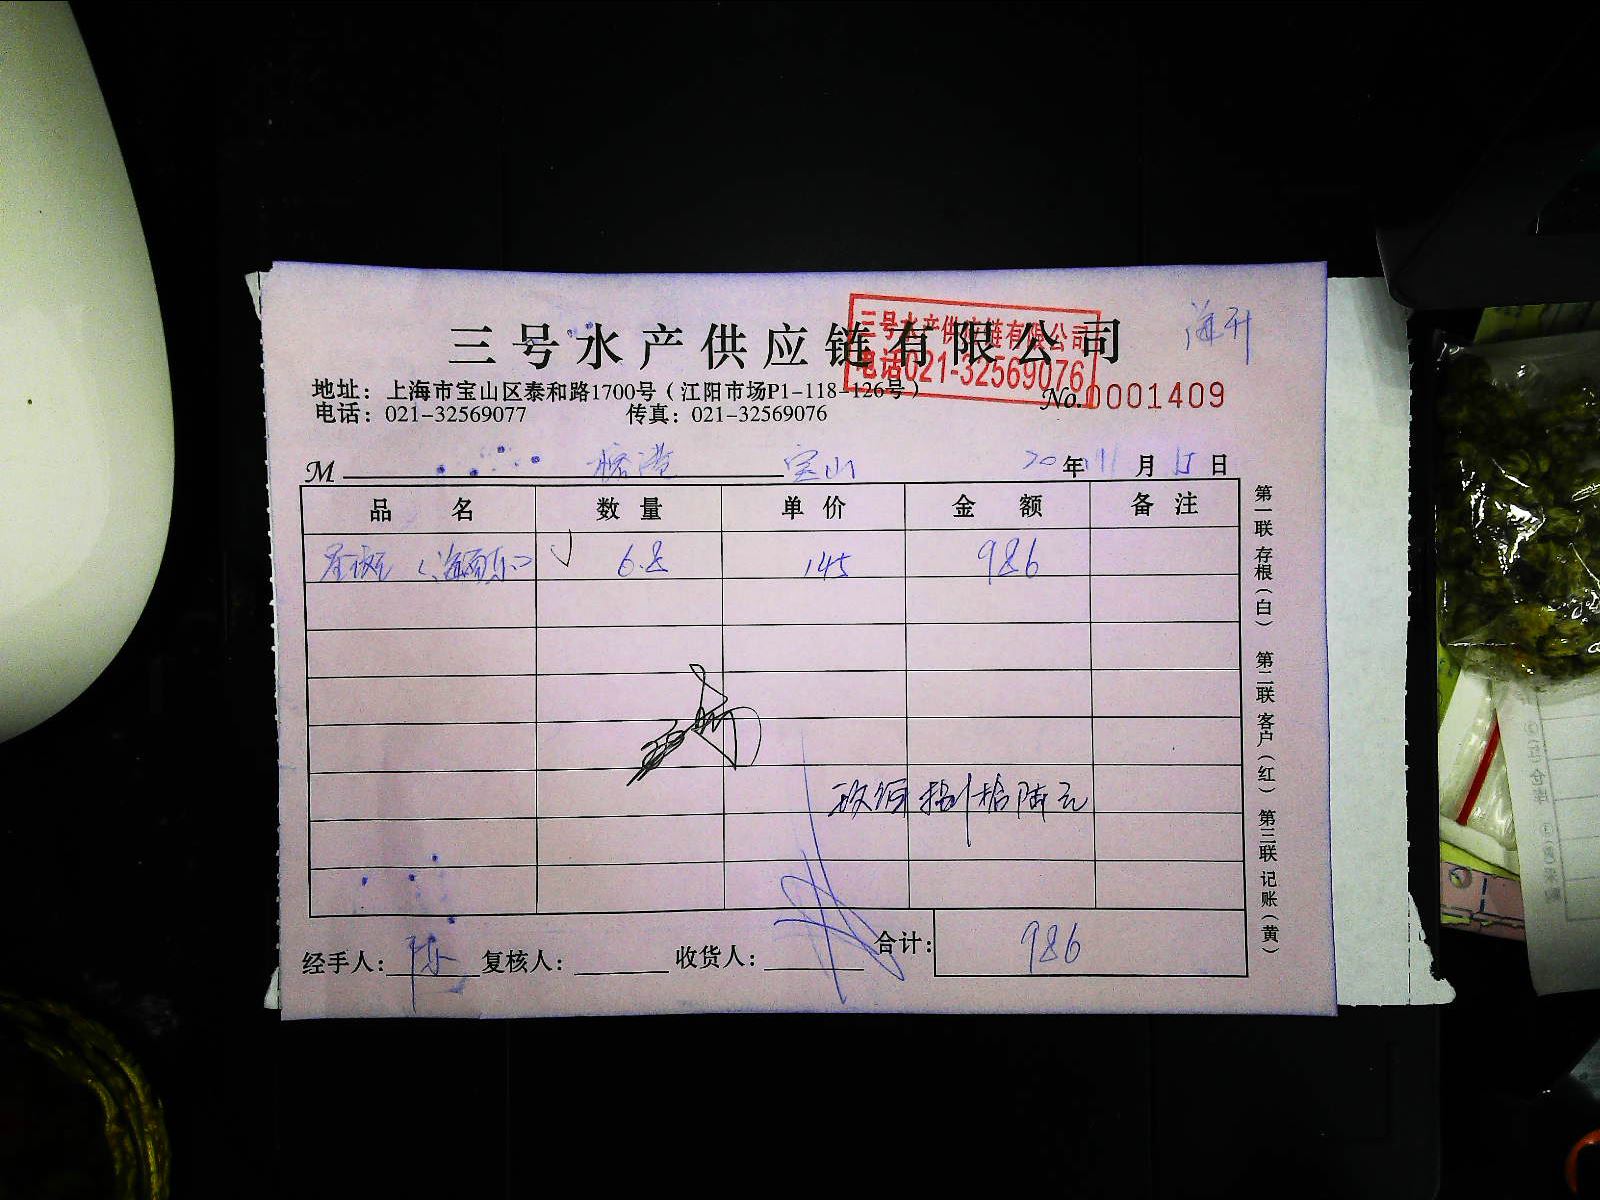 三号水产供应链有限公司
三号水产供应链有限公司
电话021-32569076
地址：上海市宝山区泰和路1700号（江阳市场P1-118-126号）
No.0001409
电话：021-32569077 传真：021-32569076
M 宝山 20年11月15日
品名 数量 单价 金额 备注
6.8 145 986
玖佰捌拾陆元
经手人：陈 复核人： 收货人： 合计：986
第一联 存根（白） 第二联 客户（红） 第三联 记账（黄）